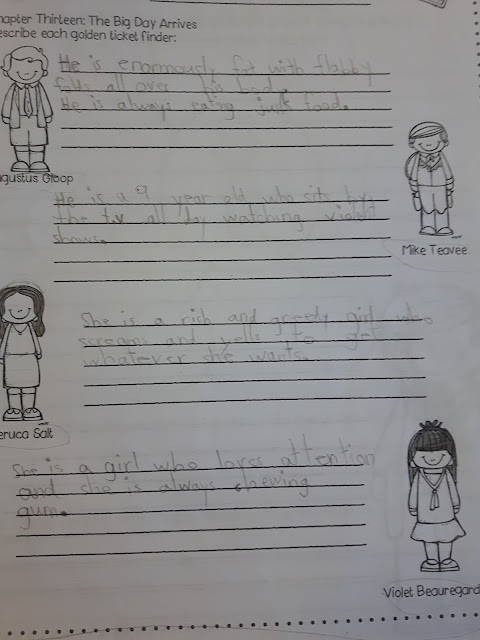 hapter Thirteen: The Big Day Arrives
escribe each golden ticket finder:
He is enormously fat with flabby
folds all over his body.
He is always eating junk food.
ugustus Gloop
He is a 9 year old who sits by
the t.v all day watching violent
shows.
Mike Teavee
She is a rich and greedy girl who
screams and yells to get
whatever she wants.
eruca Salt
She is a girl who loves attention
and she is always chewing
gum.
Violet Beauregard